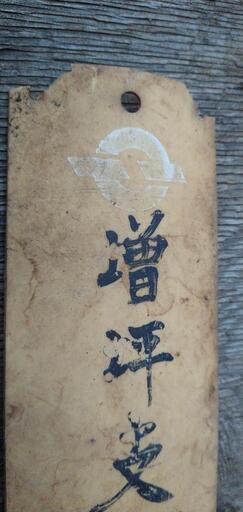 増坪支